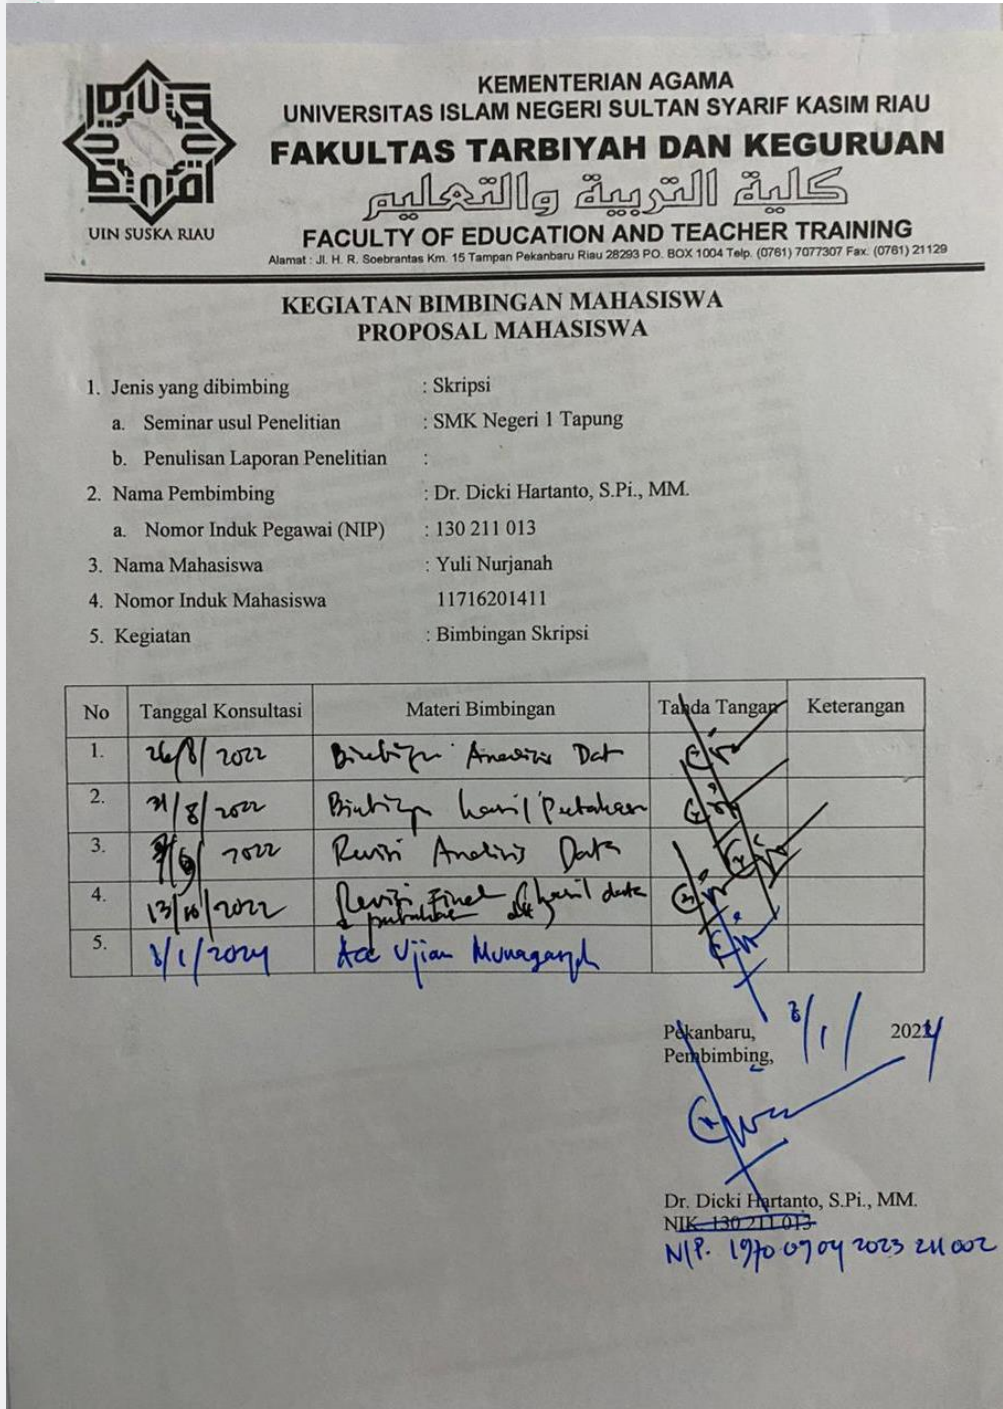 KEMENTERIAN AGAMA
UNIVERSITAS ISLAM NEGERI SULTAN SYARIF KASIM RIAU
FAKULTAS TARBIYAH DAN KEGURUAN
كلية التربية والتعليم
FACULTY OF EDUCATION AND TEACHER TRAINING
Alamat : Jl. H. R. Soebrantas Km. 15 Tampan Pekanbaru Riau 28293 PO. BOX 1004 Telp. (0761) 7077307 Fax. (0761) 21129
UIN SUSKA RIAU
KEGIATAN BIMBINGAN MAHASISWA
PROPOSAL MAHASISWA
1. Jenis yang dibimbing : Skripsi
a. Seminar usul Penelitian : SMK Negeri 1 Tapung
b. Penulisan Laporan Penelitian :
2. Nama Pembimbing : Dr. Dicki Hartanto, S.Pi., MM.
a. Nomor Induk Pegawai (NIP) : 130 211 013
3. Nama Mahasiswa : Yuli Nurjanah
4. Nomor Induk Mahasiswa 11716201411
5. Kegiatan : Bimbingan Skripsi
No Tanggal Konsultasi Materi Bimbingan Tanda Tangan Keterangan
1. 26/8/2022 Analisis Dat
2. 31/8/2022 hasil
3. 2022 Revisi Analisis Data
4. 13/10/2022 Revisi Final hasil data
5. 8/1/2024 Acc Ujian
Pekanbaru, 8/1/ 2024
Pembimbing,
Dr. Dicki Hartanto, S.Pi., MM.
NIK. 130 211 013
NIP. 1970 0704 2023 211 002